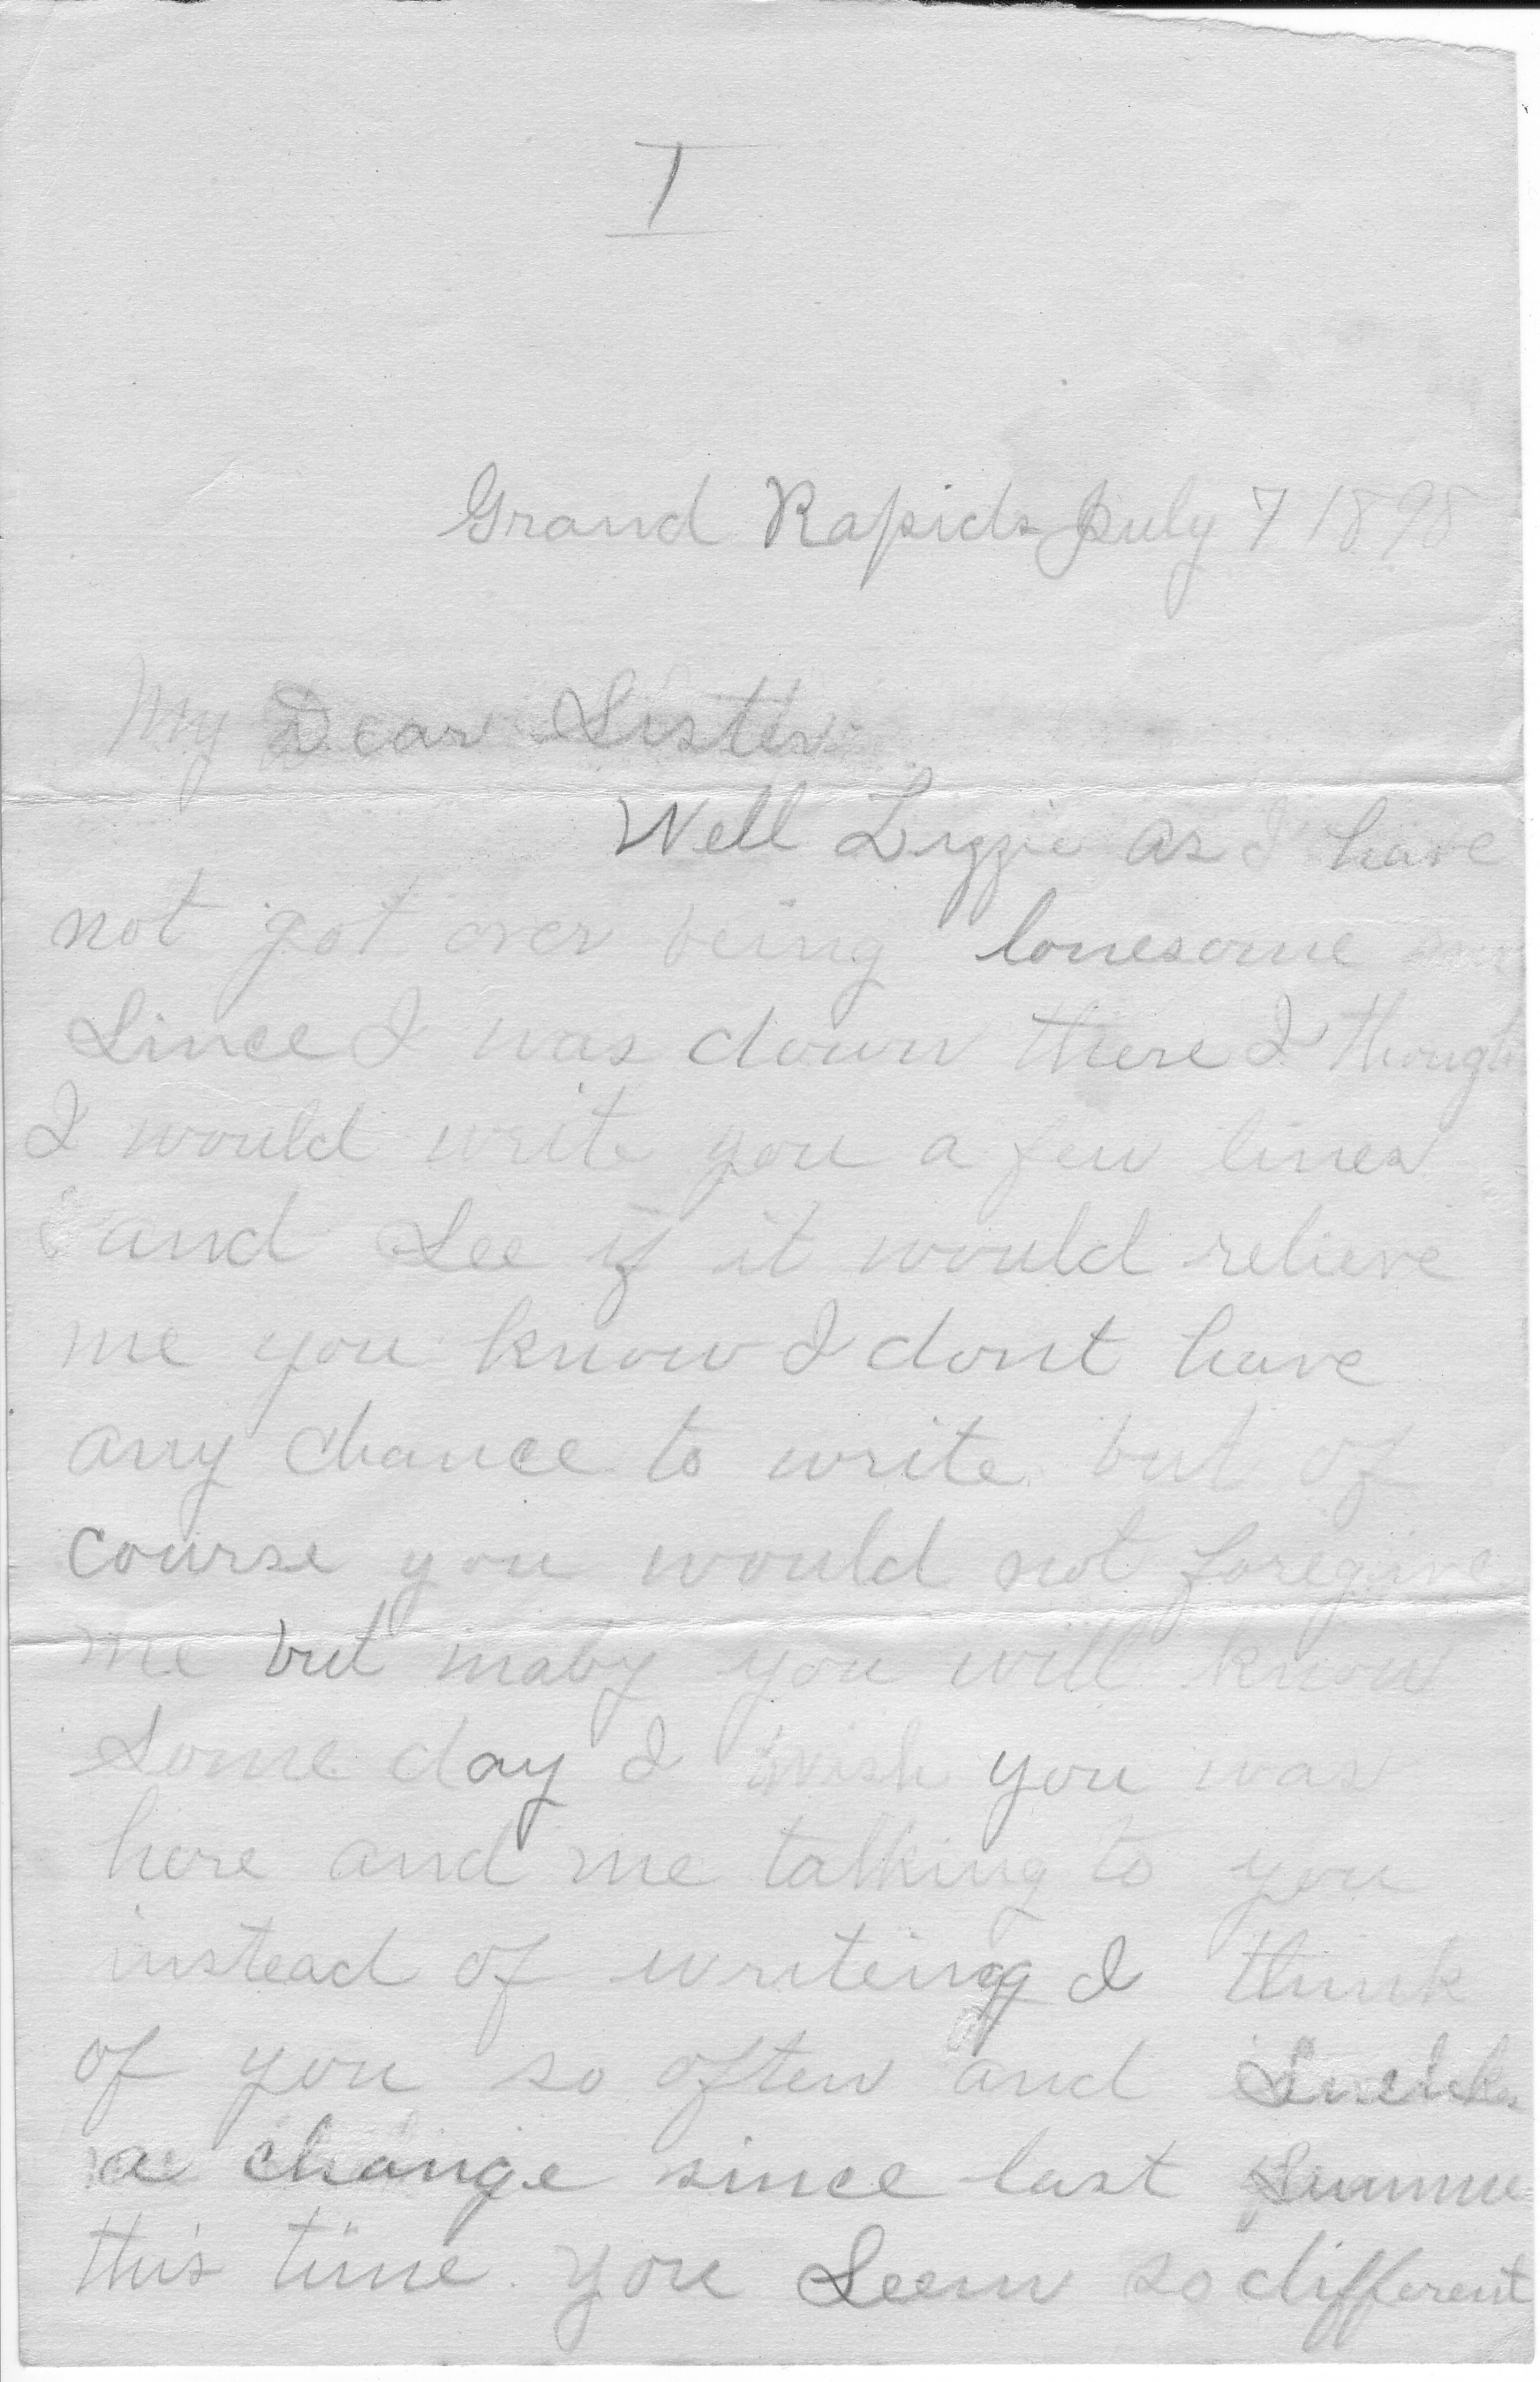 I
Grand Rapids July 7 1898
My Dear Sister
Well Lizzie as I have
not got over being lonesome
Since I was down there I though
I would write you a few lines
and See if it would relieve
me you know I dont have
any chance to write but of
course you would not foregive
me but maby you will know
Some day I wish you was
here and me talking to you
instead of writeing I think
of you so often and Such
a change since last Summe
this time you Seem so different